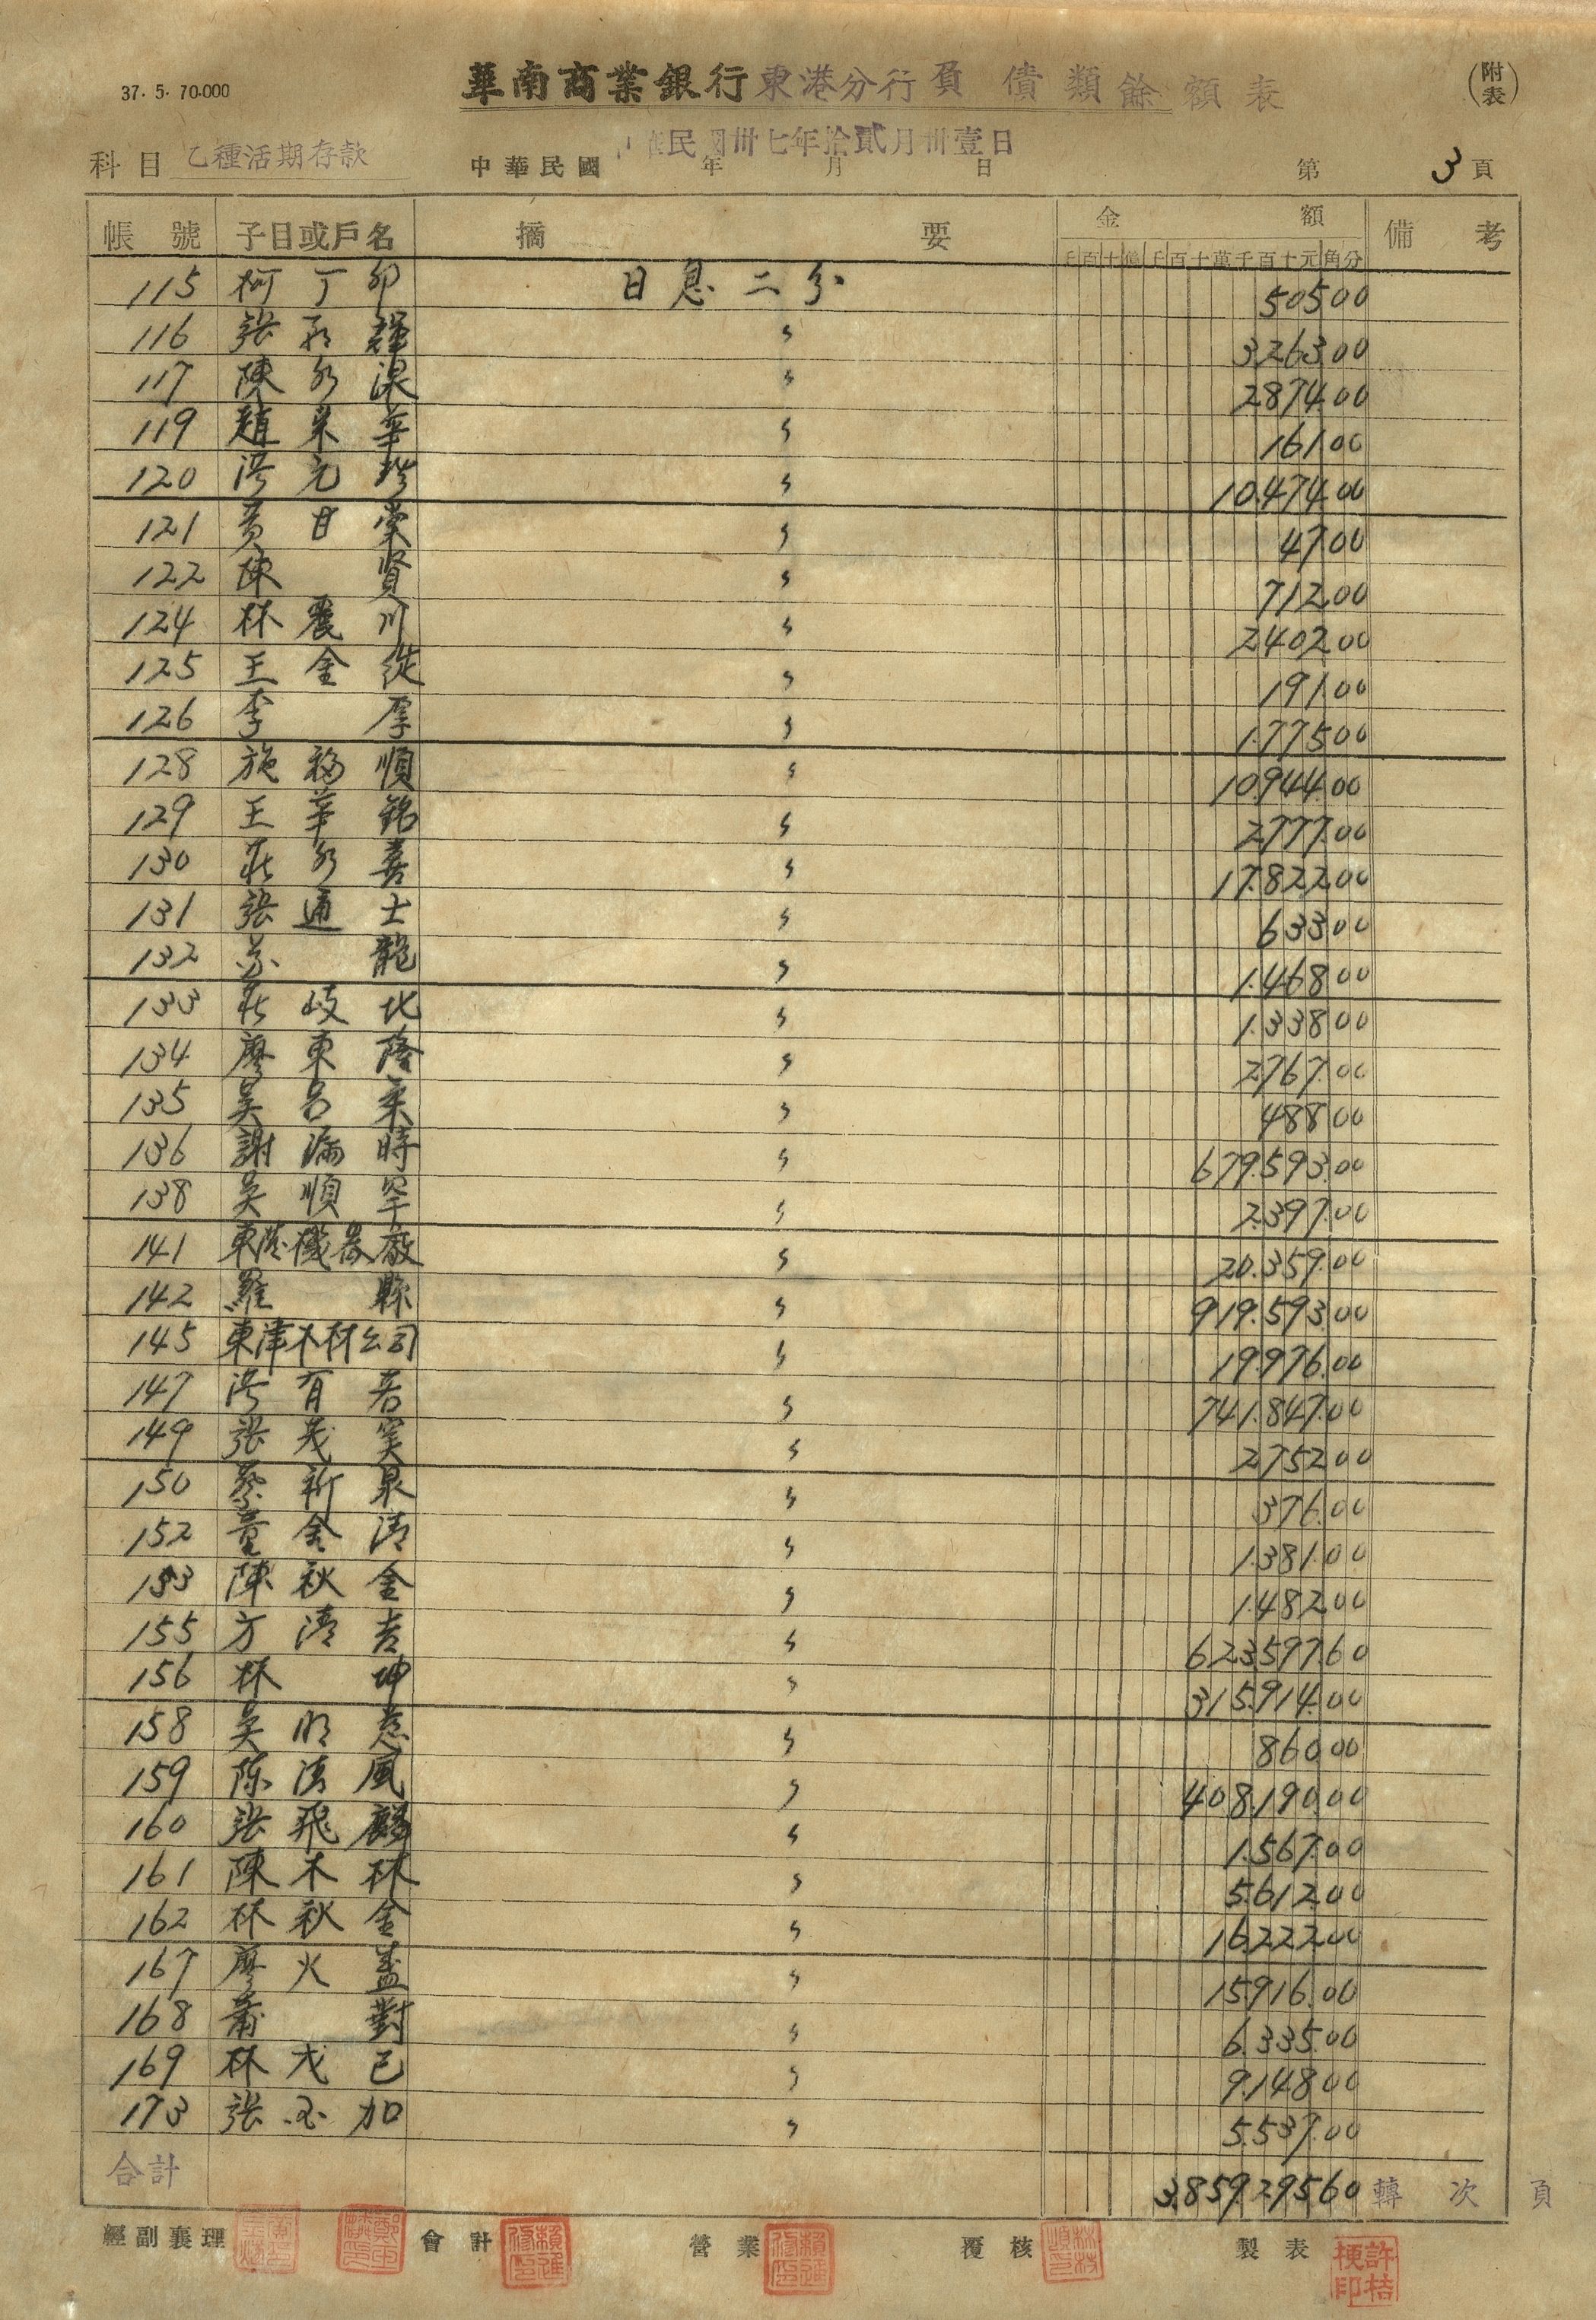 37. 5. 70.000
華南商業銀行東港分行負債類餘額表
(附表)
科目 乙種活期存款
中華民國卅七年拾貳月卅壹日
中華民國 年 月 日
第 3 頁
帳號 子目或戶名 摘要 金額 備考
千百十億千百十萬千百十元角分
115 柯丁卯 日息二分 505.00
116 張 〃 3.263.00
117 陳水濕 〃 2.874.00
119 趙榮華 〃 161.00
120 洪元 〃 10.474.00
121 黃甘棠 〃 47.00
122 陳賢 〃 712.00
124 林震川 〃 2.402.00
125 王金 〃 191.00
126 李厚 〃 1.775.00
128 施福順 〃 10.944.00
129 王華銘 〃 2.777.00
130 莊水喜 〃 17.822.00
131 張通士 〃 633.00
132 蘇龍 〃 1.468.00
133 莊岐北 〃 1.338.00
134 廖東隆 〃 2.767.00
135 吳呂 〃 488.00
136 謝滿時 〃 679.593.00
138 吳順罕 〃 2.397.00
141 東港機器廠 〃 20.359.00
142 羅縣 〃 919.593.00
145 東津木材公司 〃 19.976.00
147 洪有 〃 741.847.00
149 張茂 〃 2.752.00
150 蔡新泉 〃 376.00
152 董金清 〃 1.381.00
153 陳秋金 〃 1.482.00
155 方清吉 〃 623.597.60
156 林坤 〃 315.914.00
158 吳明意 〃 860.00
159 陳清風 〃 408.190.00
160 張飛麟 〃 1.567.00
161 陳木林 〃 5.612.00
162 林秋金 〃 16.222.00
167 廖火盖 〃 15.916.00
168 蕭對 〃 6.335.00
169 林戊己 〃 9.148.00
173 張加 〃 5.537.00
合計 3.859.295.60 轉次頁
經副襄理 會計 營業 覆核 製表